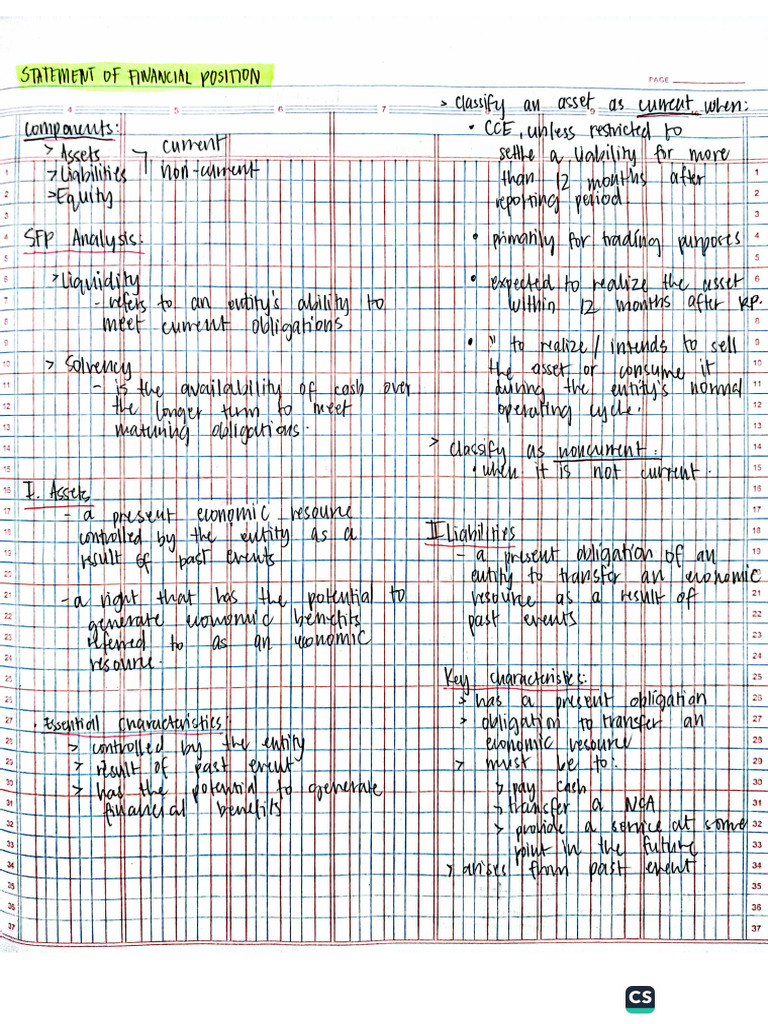 STATEMENT OF FINANCIAL POSITION
Components:
> Assets
> Liabilities
> Equity
current
non-current
SFP Analysis:
> Liquidity
- refers to an entity's ability to
meet current obligations
> Solvency
- is the availability of cash over
the longer term to meet
maturing obligations.
I. Assets
- a present economic resource
controlled by the entity as a
result of past events
- a right that has the potential to
generate economic benefits
referred to as an economic
resource.
• Essential Characteristics:
> controlled by the entity
> result of past event
> has the potential to generate
financial benefits
PAGE
> Classify an asset as current when:
• CCE, unless restricted to
settle a liability for more
than 12 months after
reporting period.
• primarily for trading purposes
• expected to realize the asset
within 12 months after RP.
• " to realize / intends to sell
the asset or consume it
during the entity's normal
operating cycle.
> classify as noncurrent:
• when it is not current.
II Liabilities
- a present obligation of an
entity to transfer an economic
resource as a result of
past events
Key Characteristics:
> has a present obligation
> obligation to transfer an
economic resource
> must be to:
> pay cash
> transfer a NCA
> provide a service at some
point in the future
> arises from past event
4 5 6 7 9
1 2 3 4 5 6 7 8 9 10 11 12 13 14 15 16 17 18 19 20 21 22 23 24 25 26 27 28 29 30 31 32 33 34 35 36 37
CS